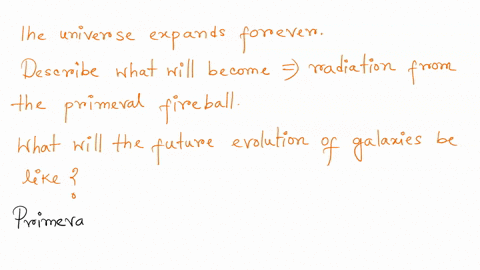 The universe expands forever.
Describe what will become ⇒ radiation from
the primeval fireball.
What will the future evolution of galaxies be
like ?
Primeva